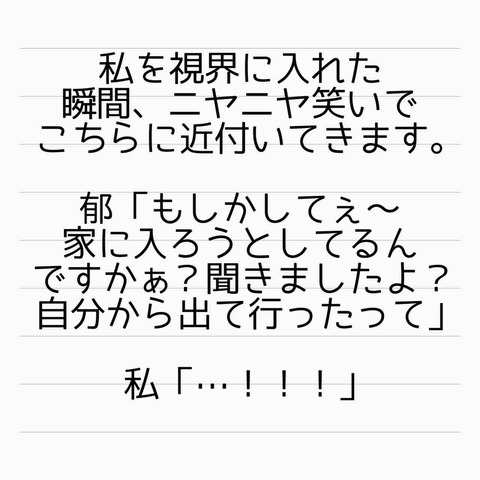 私を視界に入れた
瞬間、ニヤニヤ笑いで
こちらに近付いてきます。
郁「もしかしてぇ〜
家に入ろうとしてるん
ですかぁ？聞きましたよ？
自分から出て行ったって」
私「…！！！」